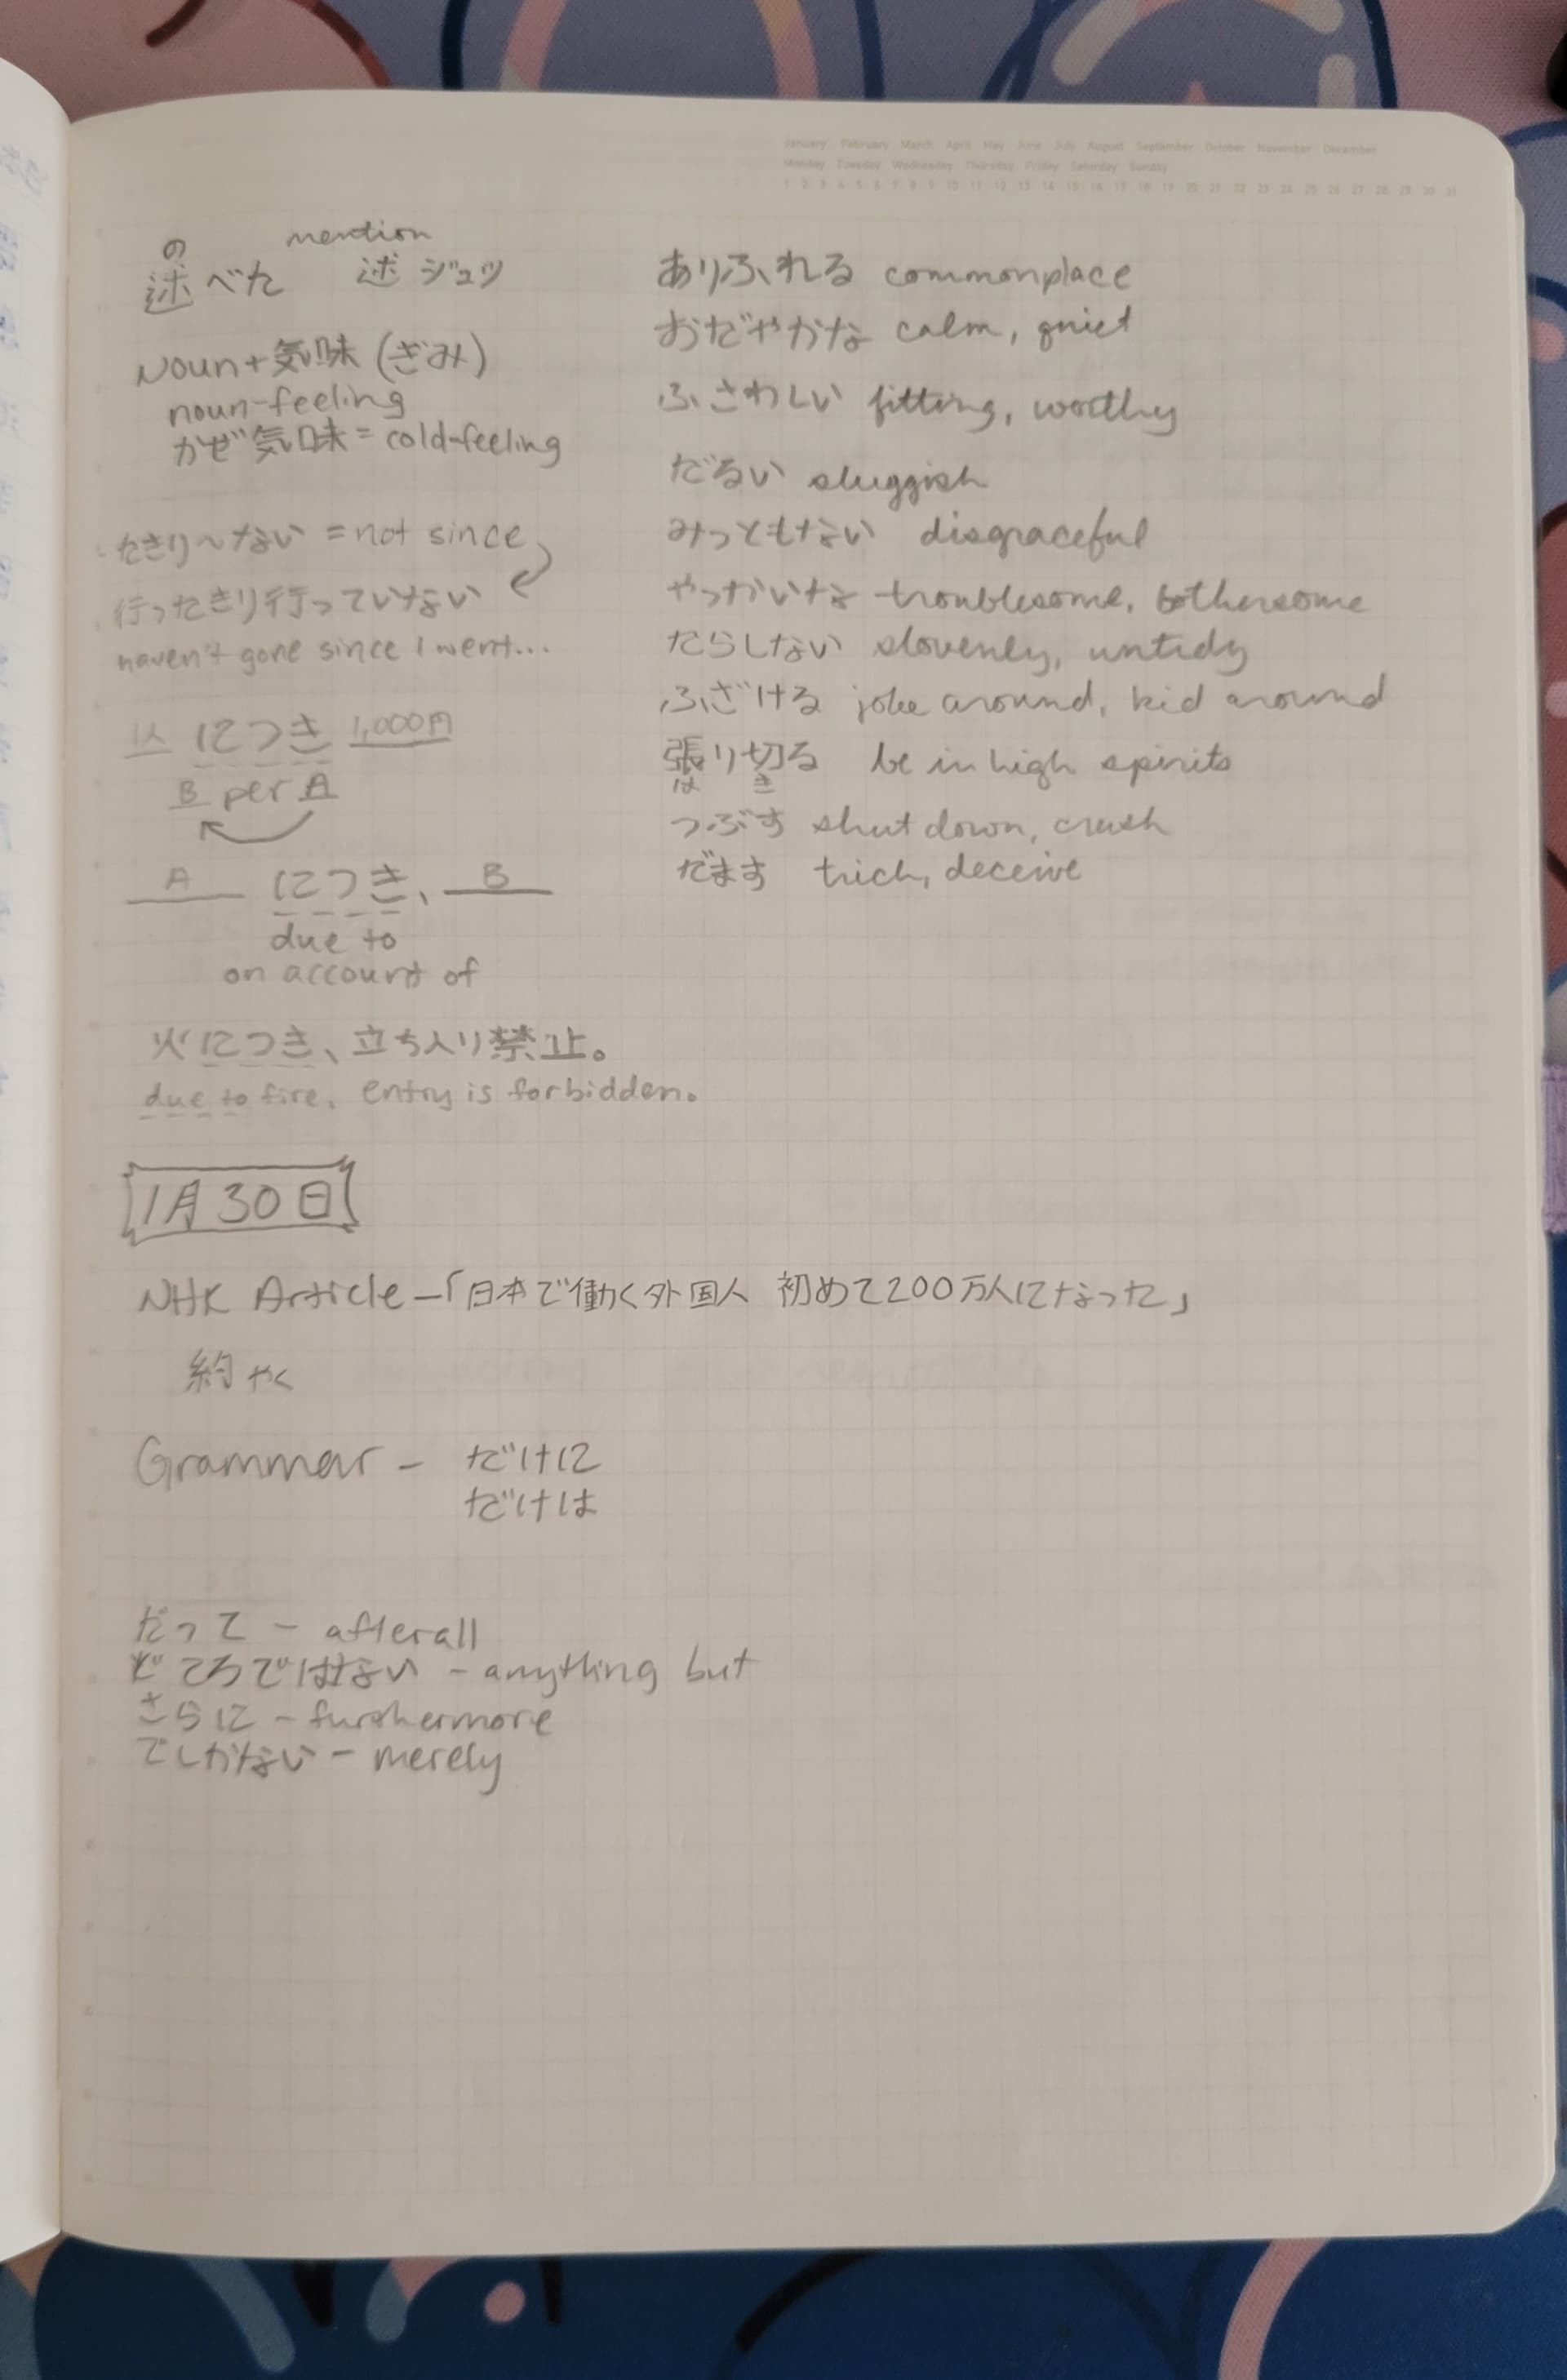 January February March April May June July August September October November December
Monday Tuesday Wednesday Thursday Friday Saturday Sunday
1 2 3 4 5 6 7 8 9 10 11 12 13 14 15 16 17 18 19 20 21 22 23 24 25 26 27 28 29 30 31
の mention
述べた 述 ジュツ
Noun+気味(ぎみ)
noun-feeling
かぜ気味=cold-feeling
たきり〜ない =not since
行ったきり行っていない
haven't gone since I went...
1人 につき 1,000円
B per A
A につき、 B
due to
on account of
火につき、立ち入り禁止。
due to fire, entry is forbidden.
ありふれる commonplace
おだやかな calm, quiet
ふさわしい fitting, worthy
だるい sluggish
みっともない disgraceful
やっかいな troublesome, bothersome
だらしない slovenly, untidy
ふざける joke around, kid around
張り切る be in high spirits
は き
つぶす shut down, crush
だます trick, deceive
1月30日
NHK Article-「日本で働く外国人 初めて200万人になった」
約 やく
Grammar - だけに
だけは
だって - afterall
どころではない - anything but
さらに - furthermore
でしかない - merely